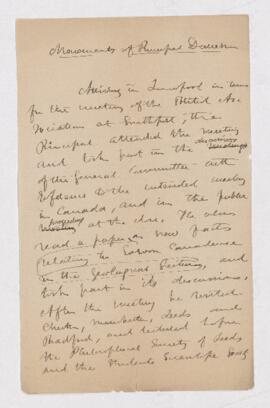 Movements of Principal Dawson
Arriving in Liverpool in time
for the meeting of the British As-
sociation at Southport; the
Principal attended the meeting
and took part in the discussions
of the General Committee with
reference to the intended meeting
in Canada, and in the public
proceedings at the close. He also
read a paper on new facts
relating to Eozoon Canadense
in the Geological Section, and
took part in its discussions.
After the meeting he visited
Chester, Manchester, Leeds and
Bradford, and lectured before
the Philosophical Society of Leeds
and the Students Scientific Socy